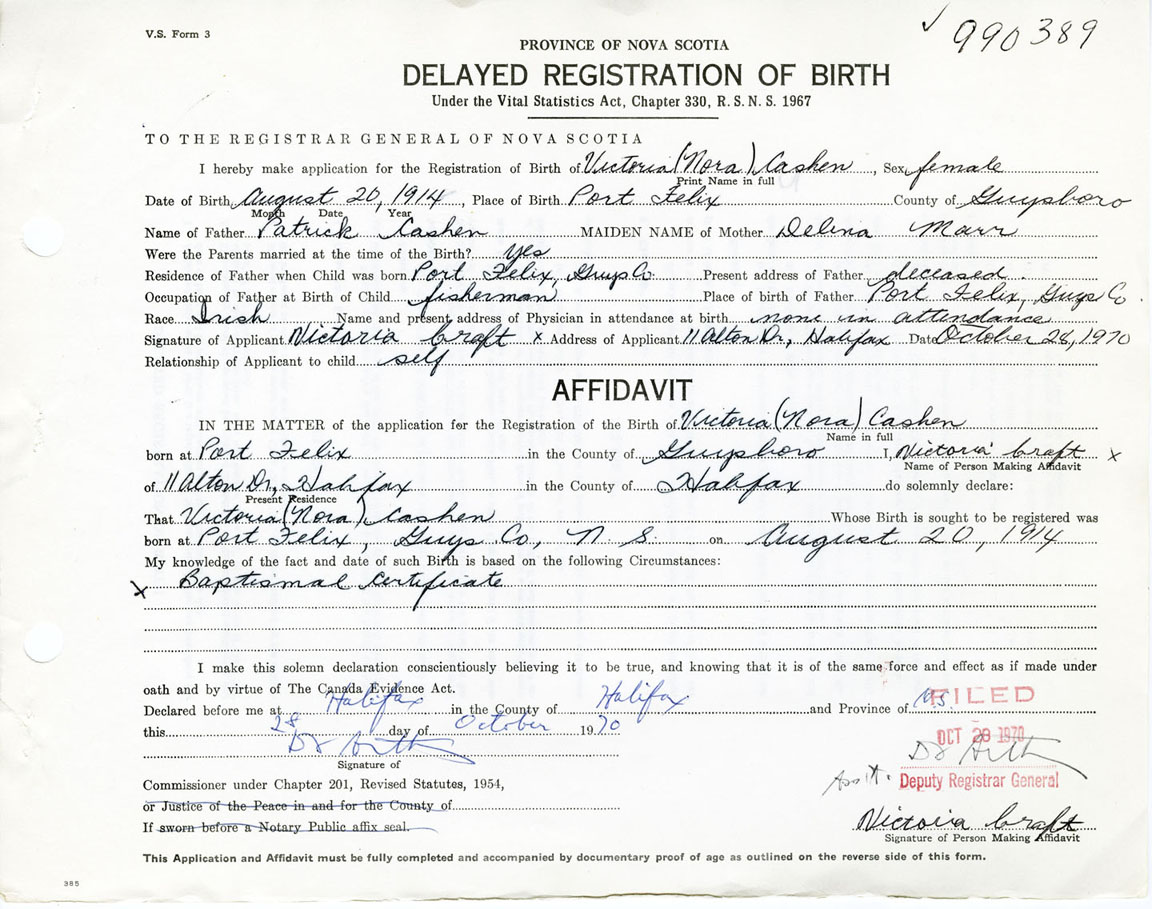 V.S. Form 3
✓ 990389
PROVINCE OF NOVA SCOTIA
DELAYED REGISTRATION OF BIRTH
Under the Vital Statistics Act, Chapter 330, R. S. N. S. 1967
TO THE REGISTRAR GENERAL OF NOVA SCOTIA
I hereby make application for the Registration of Birth of Victoria (Nora) Cashen, Sex female
Print Name in full
Date of Birth August 20, 1914, Place of Birth Port Felix County of Guysboro
Month Date Year
Name of Father Patrick Cashen MAIDEN NAME of Mother Delina Marr
Were the Parents married at the time of the Birth? yes
Residence of Father when Child was born Port Felix, Guys Co. Present address of Father deceased
Occupation of Father at Birth of Child fisherman Place of birth of Father Port Felix, Guys Co.
Race Irish Name and present address of Physician in attendance at birth none in attendance
Signature of Applicant Victoria Craft x Address of Applicant 11 Alton Dr., Halifax Date October 28, 1970
Relationship of Applicant to child self
AFFIDAVIT
IN THE MATTER of the application for the Registration of the Birth of Victoria (Nora) Cashen
Name in full
born at Port Felix in the County of Guysboro I, Victoria Craft x
Name of Person Making Affidavit
of 11 Alton Dr., Halifax in the County of Halifax do solemnly declare:
Present Residence
That Victoria (Nora) Cashen Whose Birth is sought to be registered was
born at Port Felix, Guys Co., N. S. on August 20, 1914
My knowledge of the fact and date of such Birth is based on the following Circumstances:
x Baptismal Certificate
I make this solemn declaration conscientiously believing it to be true, and knowing that it is of the same force and effect as if made under
oath and by virtue of The Canada Evidence Act.
Declared before me at Halifax in the County of Halifax and Province of NS
FILED
this 28 day of October 1970
OCT 28 1970
Signature of
Asst. Deputy Registrar General
Commissioner under Chapter 201, Revised Statutes, 1954,
or Justice of the Peace in and for the County of
If sworn before a Notary Public affix seal.
Victoria Craft
Signature of Person Making Affidavit
This Application and Affidavit must be fully completed and accompanied by documentary proof of age as outlined on the reverse side of this form.
385